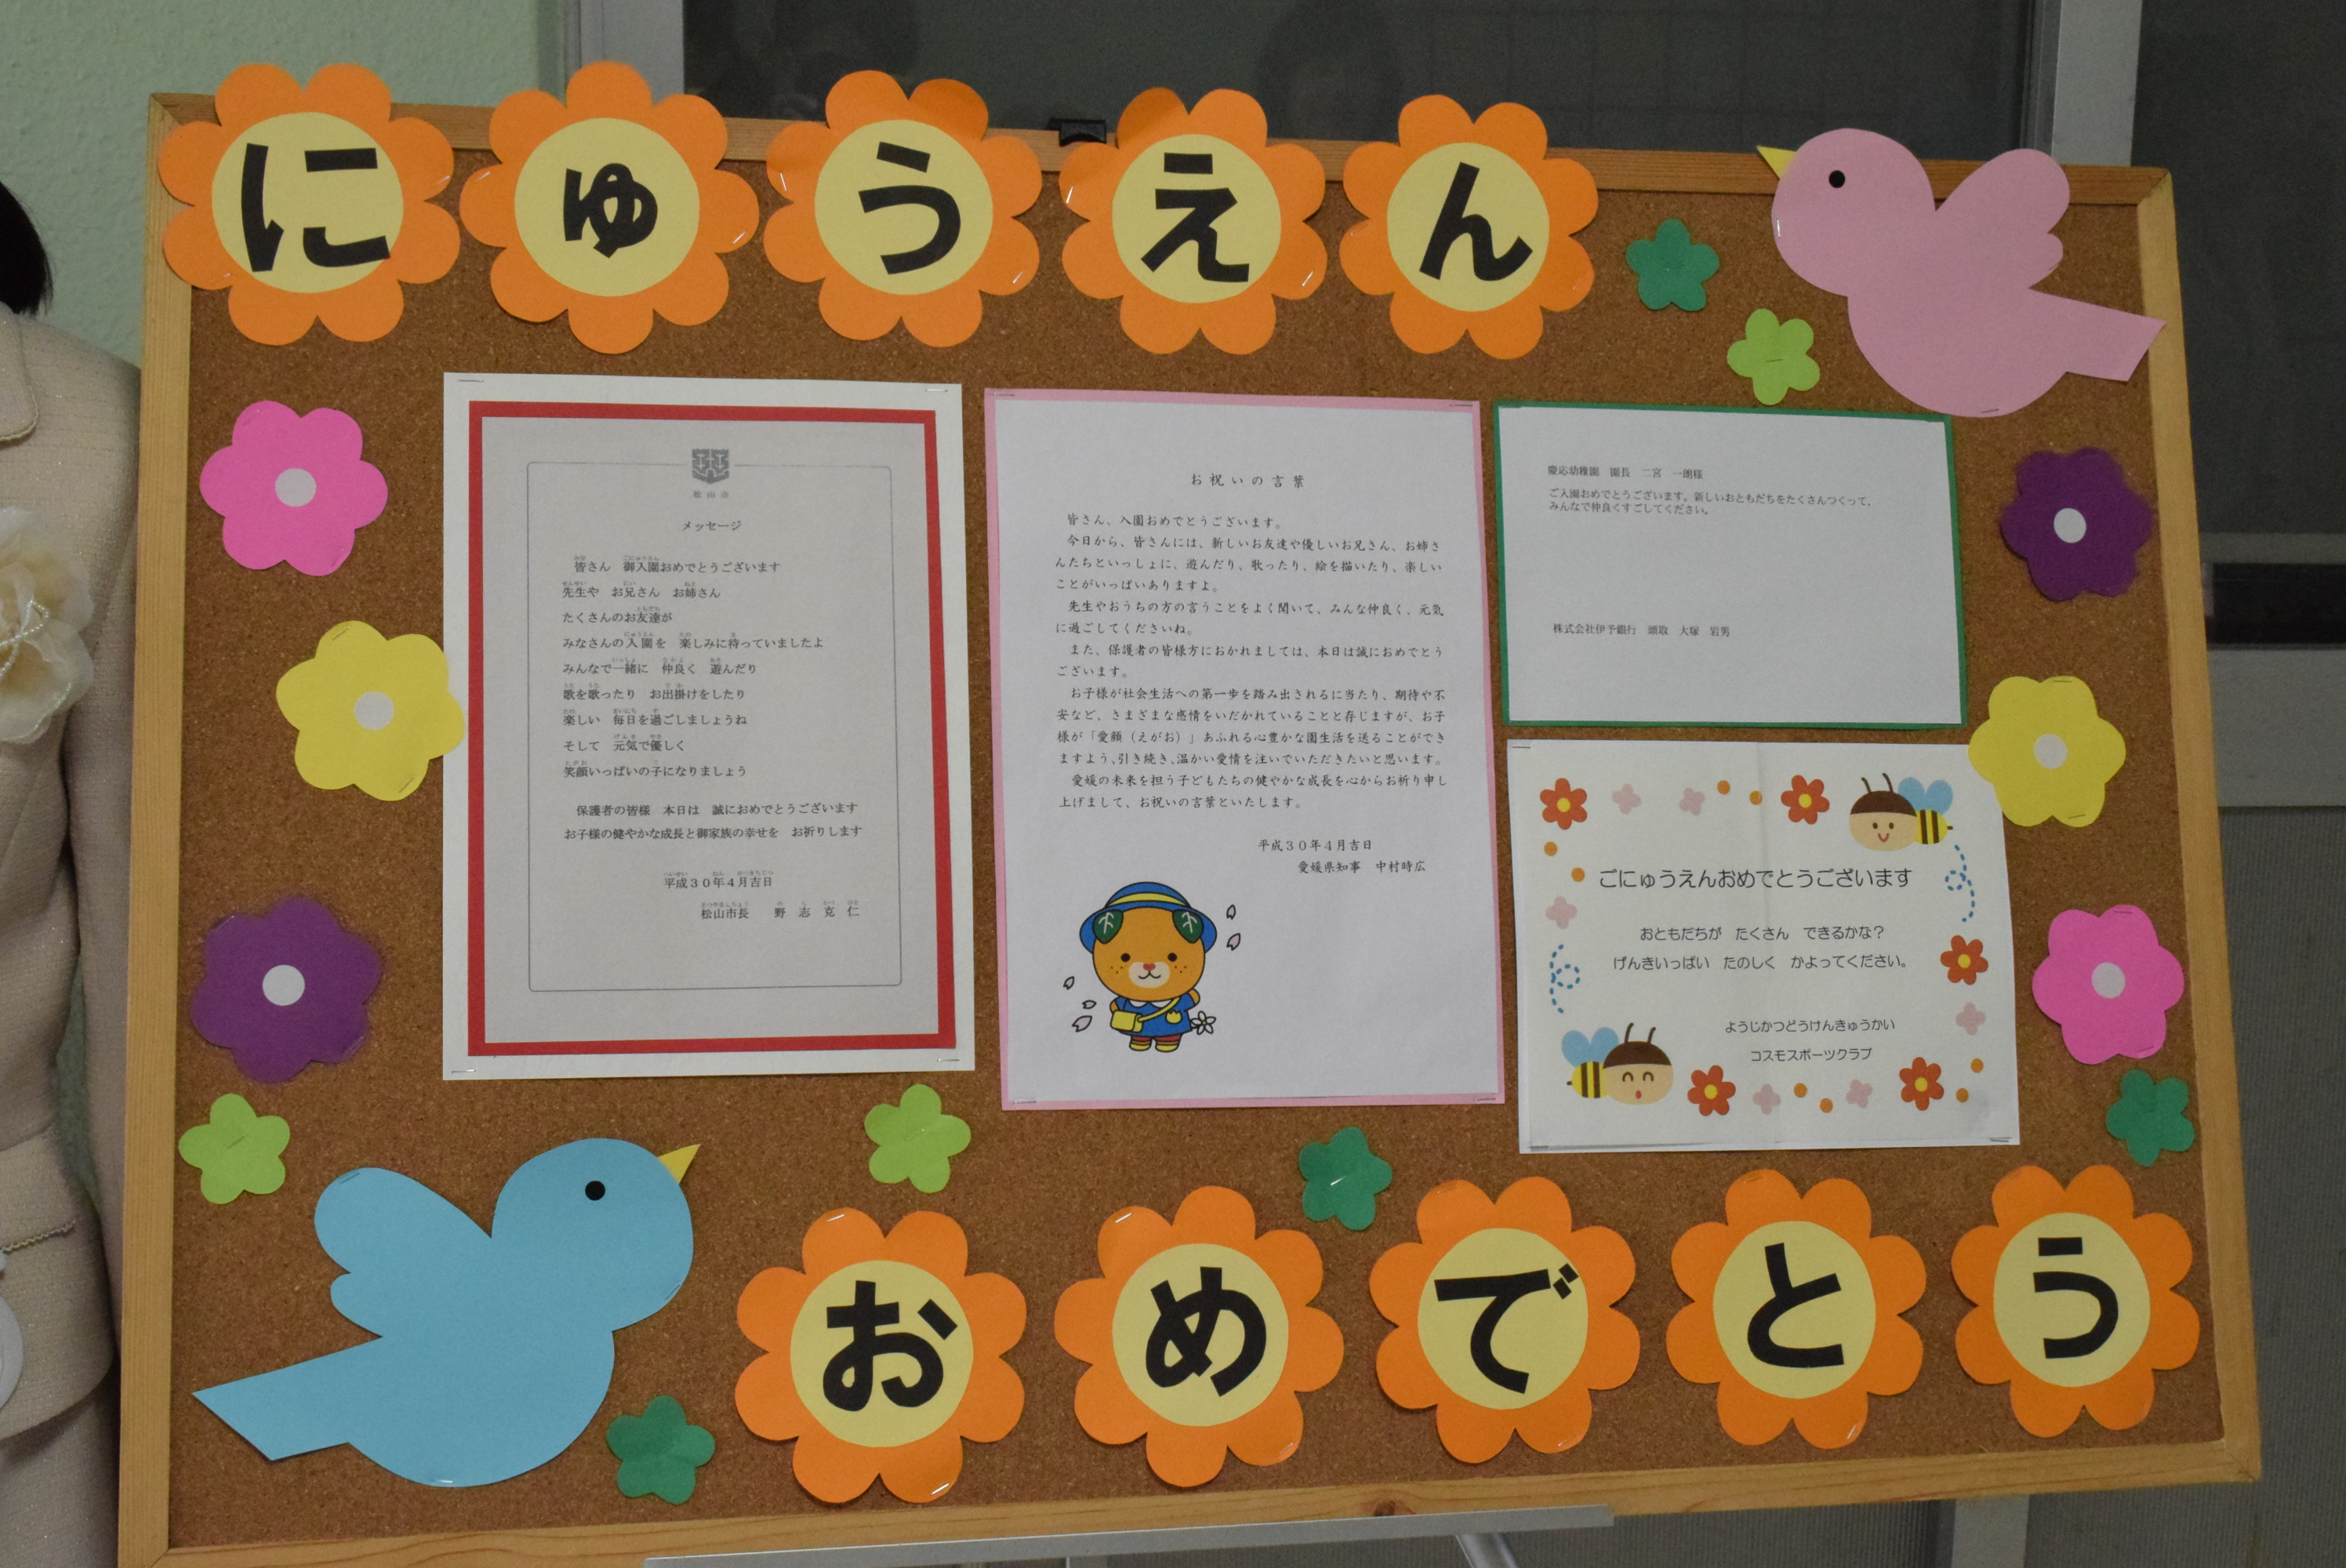 にゅうえん
松山市
メッセージ
皆さん　御入園おめでとうございます
先生や　お兄さん　お姉さん
たくさんのお友達が
みなさんの入園を　楽しみに待っていましたよ
みんなで一緒に　仲良く　遊んだり
歌を歌ったり　お出掛けをしたり
楽しい　毎日を過ごしましょうね
そして　元気で優しく
笑顔いっぱいの子になりましょう
保護者の皆様　本日は　誠におめでとうございます
お子様の健やかな成長と御家族の幸せを　お祈りします
平成３０年４月吉日
松山市長　野志克仁
お祝いの言葉
皆さん、入園おめでとうございます。
今日から、皆さんには、新しいお友達や優しいお兄さん、お姉さ
んたちといっしょに、遊んだり、歌ったり、絵を描いたり、楽しい
ことがいっぱいありますよ。
先生やおうちの方の言うことをよく聞いて、みんな仲良く、元気
に過ごしてくださいね。
また、保護者の皆様方におかれましては、本日は誠におめでとう
ございます。
お子様が社会生活への第一歩を踏み出されるに当たり、期待や不
安など、さまざまな感情をいだかれていることと存じますが、お子
様が「愛顔（えがお）」あふれる心豊かな園生活を送ることができ
ますよう、引き続き、温かい愛情を注いでいただきたいと思います。
愛媛の未来を担う子どもたちの健やかな成長を心からお祈り申し
上げまして、お祝いの言葉といたします。
平成３０年４月吉日
愛媛県知事　中村時広
慶応幼稚園　園長　二宮　一朗様
ご入園おめでとうございます。新しいおともだちをたくさんつくって、
みんなで仲良くすごしてください。
株式会社伊予銀行　頭取　大塚　岩男
ごにゅうえんおめでとうございます
おともだちが　たくさん　できるかな？
げんきいっぱい　たのしく　かよってください。
ようじかつどうけんきゅうかい
コスモスポーツクラブ
おめでとう